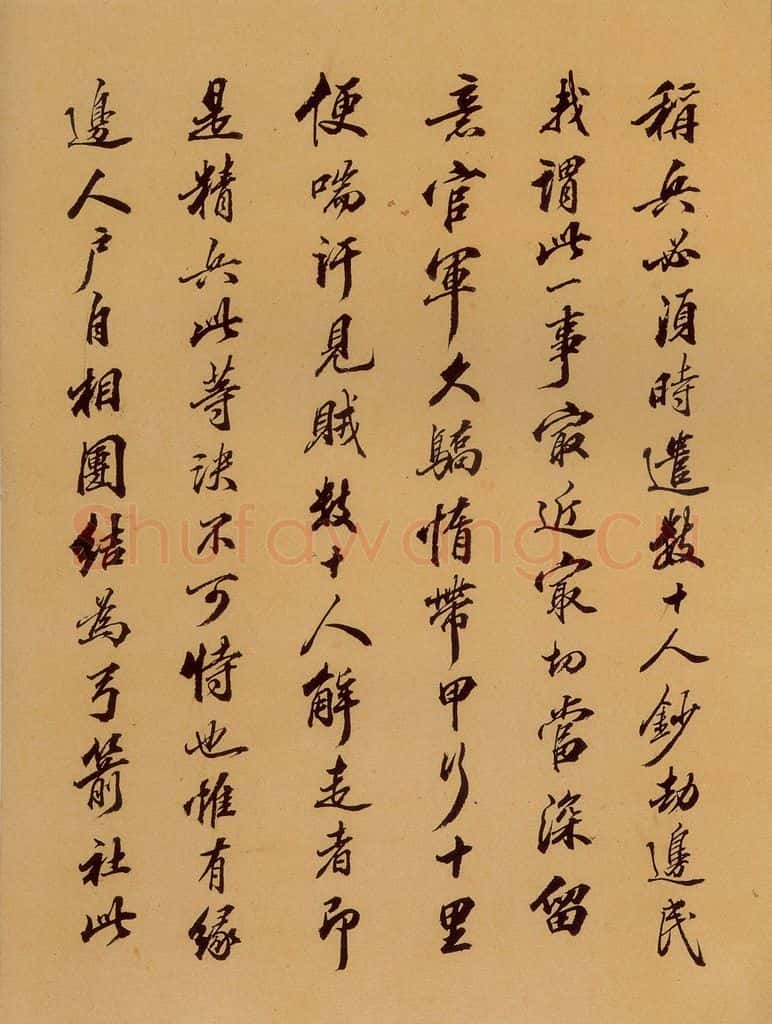 稱兵必須時遣數十人鈔劫邊民
我謂此一事最近最切當深留
意官軍大驕惰帶甲行十里
便喘汗見賊數十人解走者即
是精兵此等決不可恃也惟有緣
邊人戶自相團結為弓箭社此
Shufawang.cn